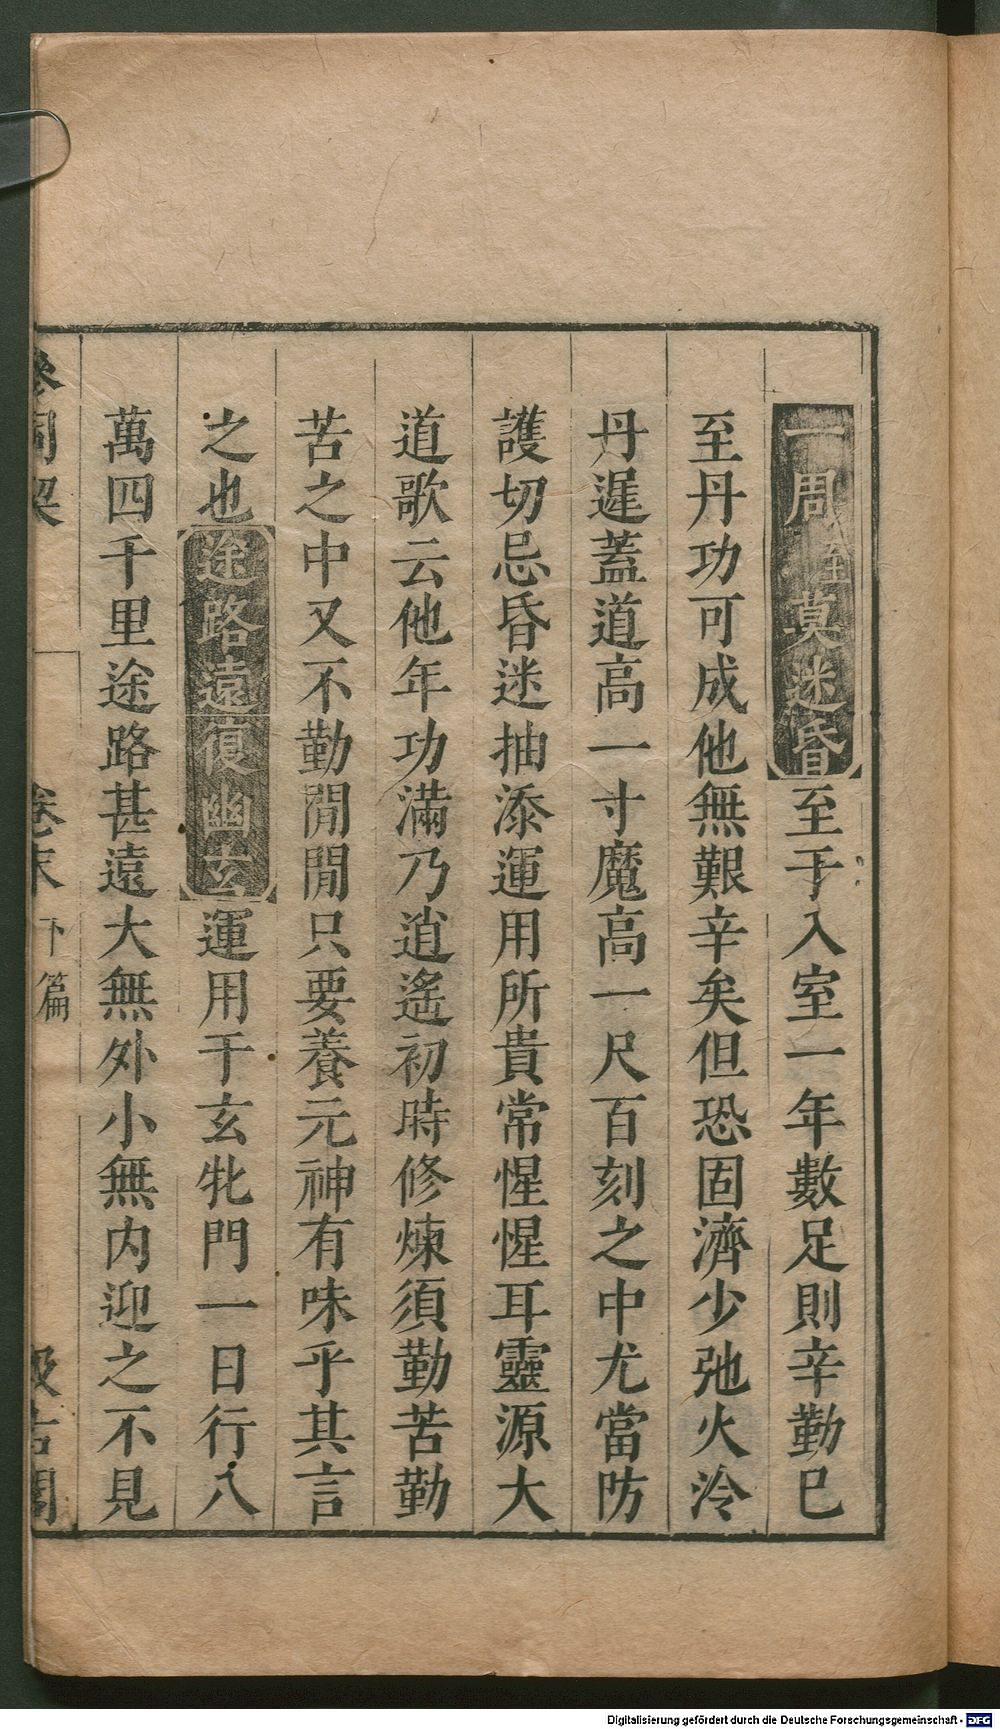 一周至莫迷昏至于入室一年數足則辛勤巳
至丹功可成他無艱辛矣但恐固濟少弛火冷
丹遲蓋道高一寸魔高一尺百刻之中尤當防
護切忌昏迷抽添運用所貴常惺惺耳靈源大
道歌云他年功滿乃逍遙初時修煉須勤苦勤
苦之中又不勤閒閒只要養元神有味乎其言
之也途路遠復幽玄運用于玄牝門一日行八
萬四千里途路甚遠大無外小無内迎之不見
參同契 卷末 下篇 汲古閣
Digitalisierung gefördert durch die Deutsche Forschungsgemeinschaft - DFG